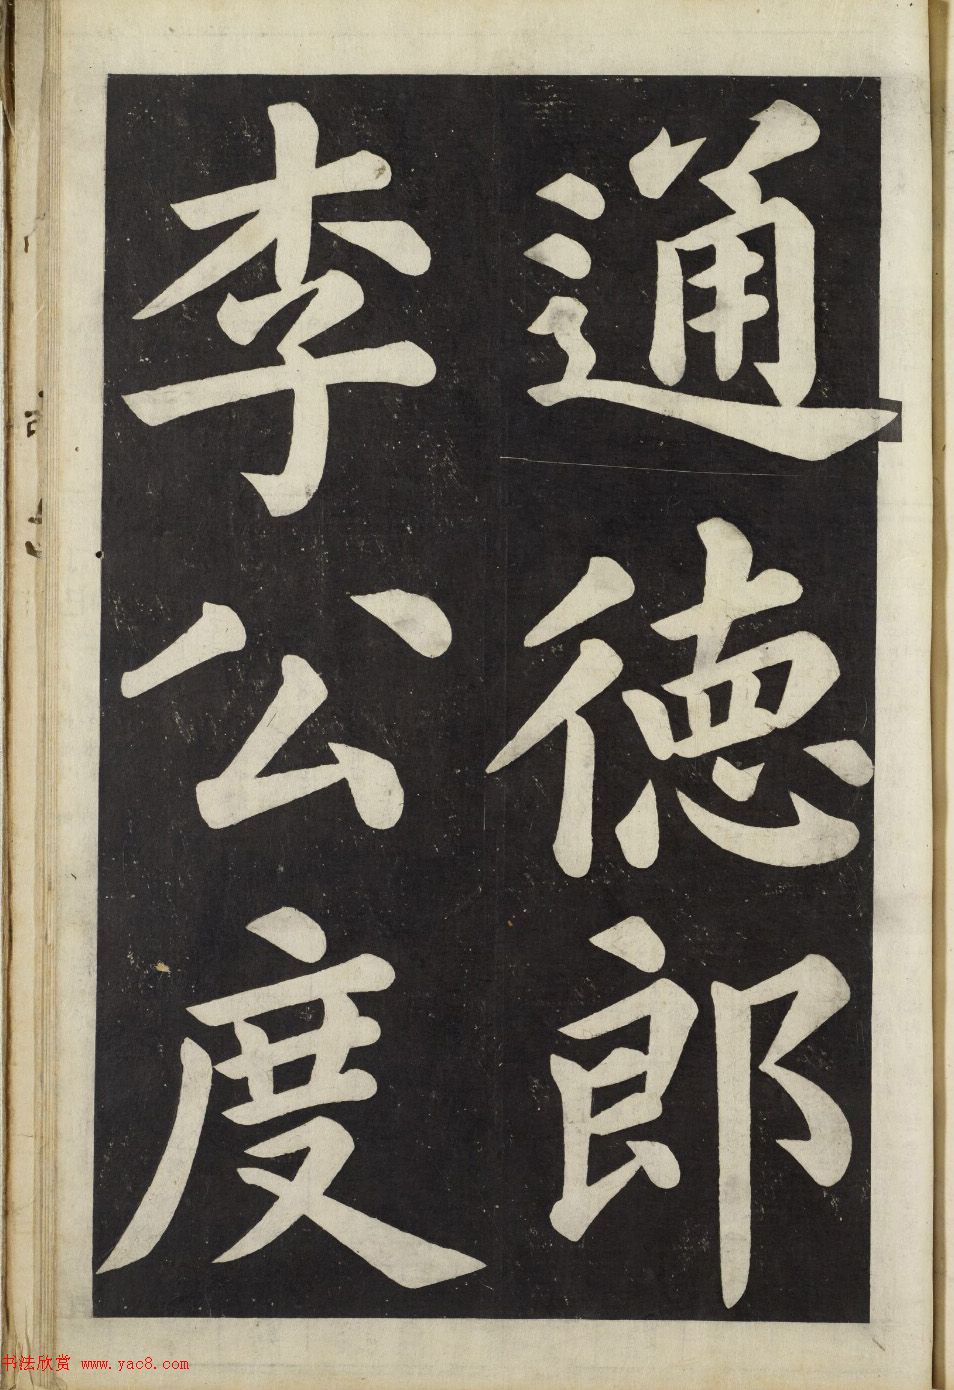 通德郎
李公度
书法欣赏 www.yac8.com